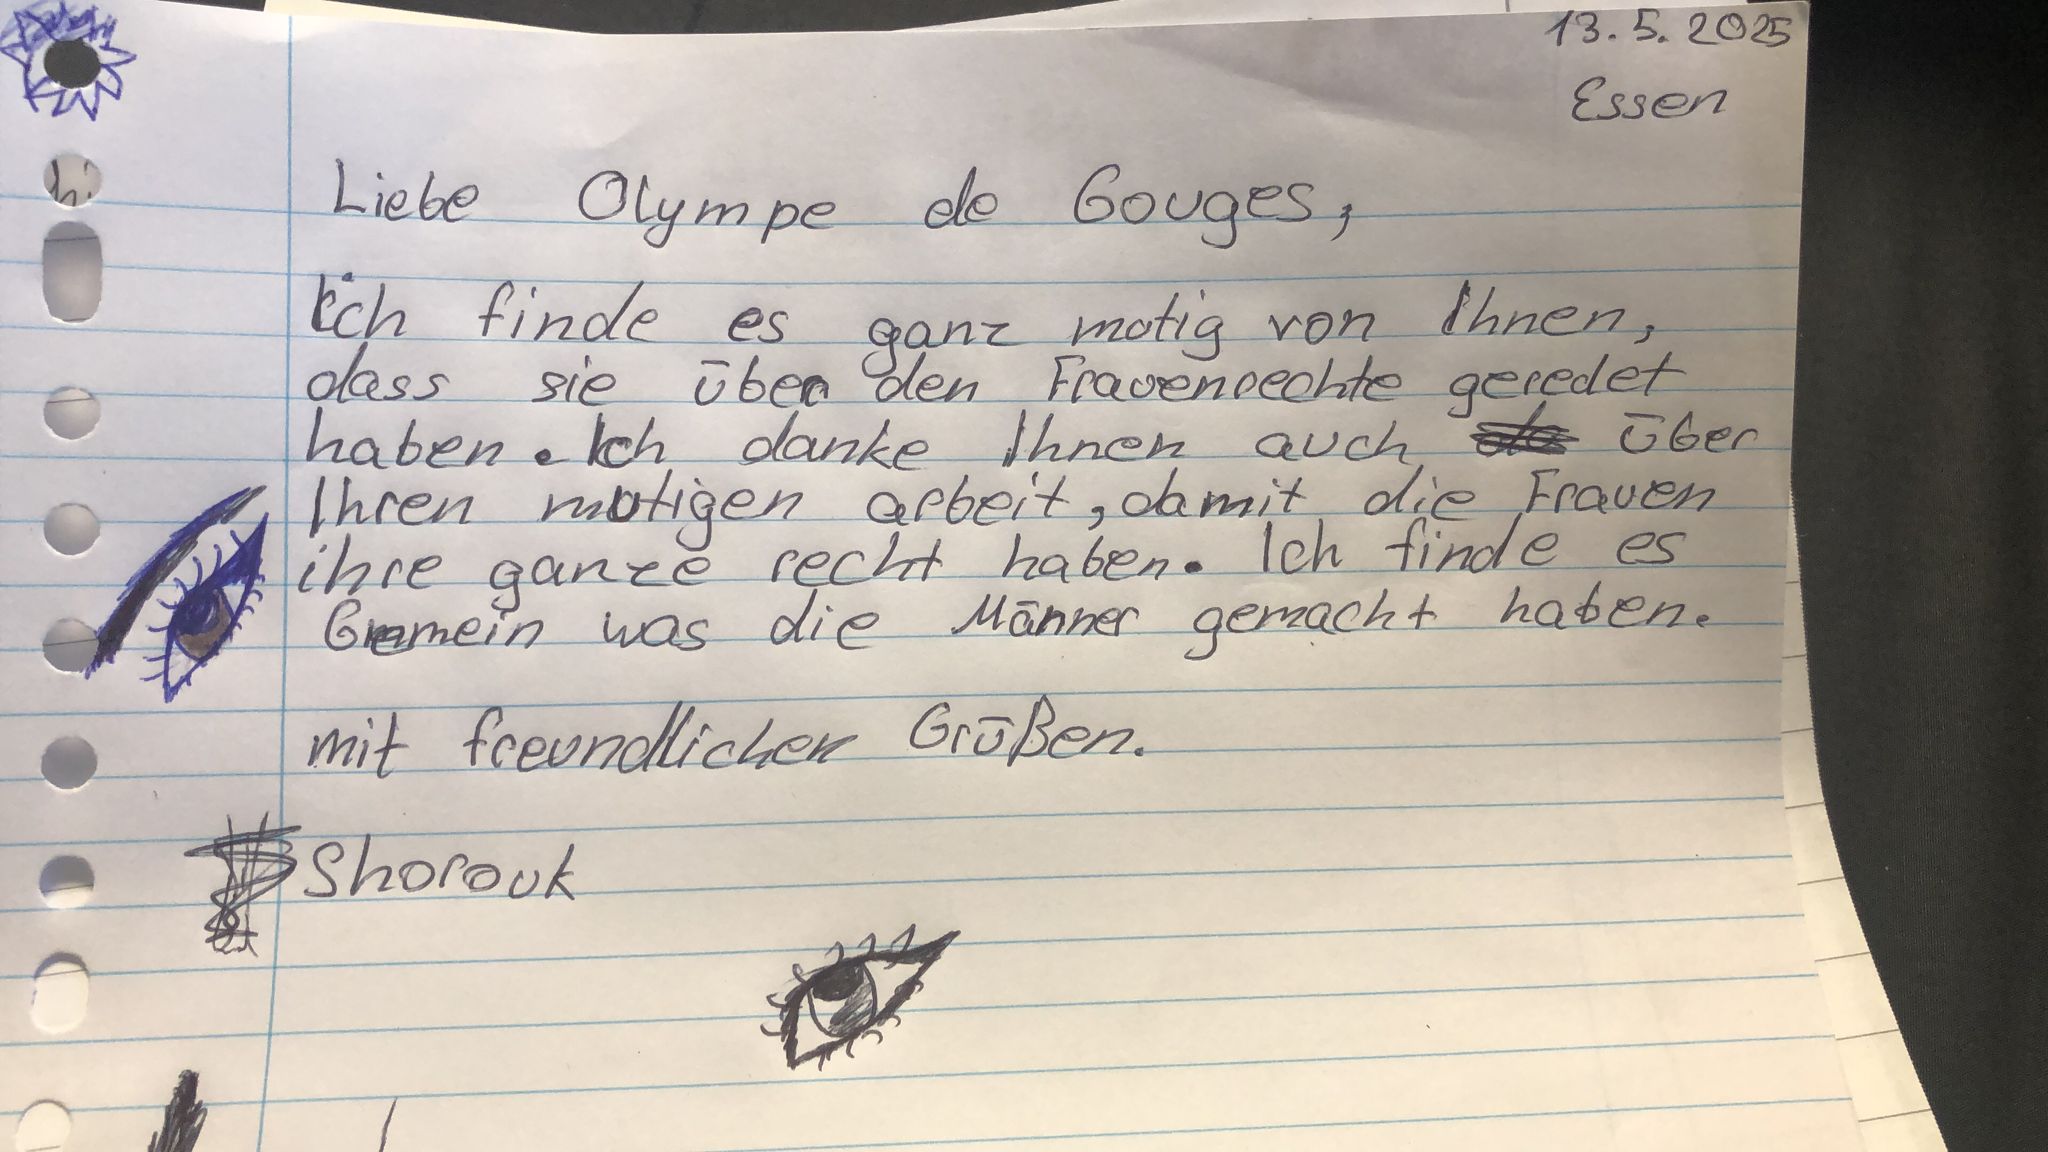 13.5.2025
Essen
Liebe Olympe de Gouges,
ich finde es ganz mutig von Ihnen,
dass sie über den Frauenrechte geredet
haben. Ich danke Ihnen auch über
Ihren mutigen arbeit, damit die Frauen
ihre ganze recht haben. Ich finde es
Gemein was die Männer gemacht haben.
mit freundlichen Grüßen.
Shorouk